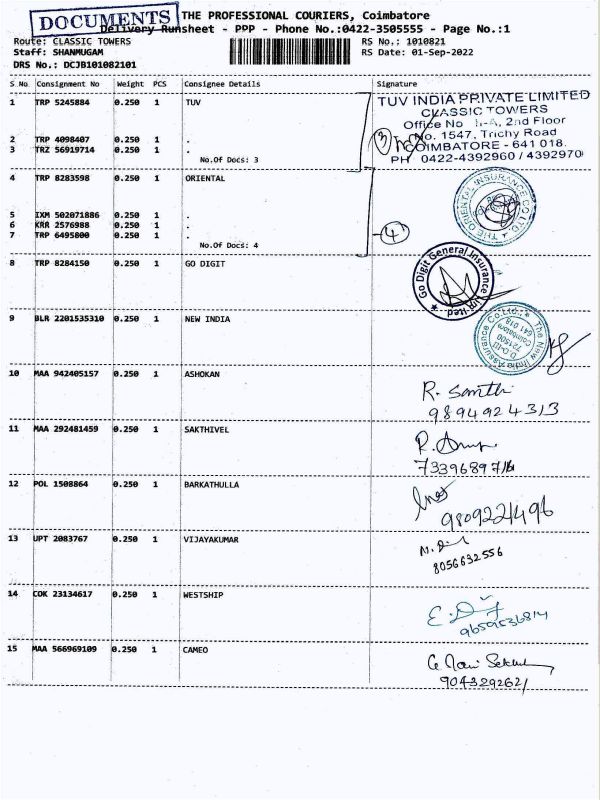 DOCUMENTS
THE PROFESSIONAL COURIERS, Coimbatore
Delivery Runsheet - PPP - Phone No.:0422-3505555 - Page No.:1
Route: CLASSIC TOWERS RS No.: 1010821
Staff: SHANMUGAM RS Date: 01-Sep-2022
DRS No.: DCJB101082101
S No Consignment No Weight PCS Consignee Details Signature
1 TRP 5245884 0.250 1 TUV
TUV INDIA PRIVATE LIMITED
CLASSIC TOWERS
Office No , 2nd Floor
No. 1547, Trichy Road
COIMBATORE - 641 018.
PH 0422-4392960 / 4392970
2 TRP 4098407 0.250 1 .
3 TRZ 56919714 0.250 1 .
No.Of Docs: 3
3
4 TRP 8283598 0.250 1 ORIENTAL
THE ORIENTAL INSURANCE CO.LTD.
5 IXM 502071886 0.250 1 .
6 KRR 2576988 0.250 1 .
7 TRP 6495800 0.250 1 .
No.Of Docs: 4
4
8 TRP 8284150 0.250 1 GO DIGIT
Go Digit General Insurance Limited
9 BLR 2201535310 0.250 1 NEW INDIA
The New India Assurance Co.Ltd.
D.O-III
721500
Coimbatore
641 018
10 MAA 942405157 0.250 1 ASHOKAN
R. Santhi
9894924313
11 MAA 292481459 0.250 1 SAKTHIVEL
12 POL 1508864 0.250 1 BARKATHULLA
9809221496
13 UPT 2083767 0.250 1 VIJAYAKUMAR
8056632556
14 COK 23134617 0.250 1 WESTSHIP
9659536814
15 MAA 566969109 0.250 1 CAMEO
9043292621